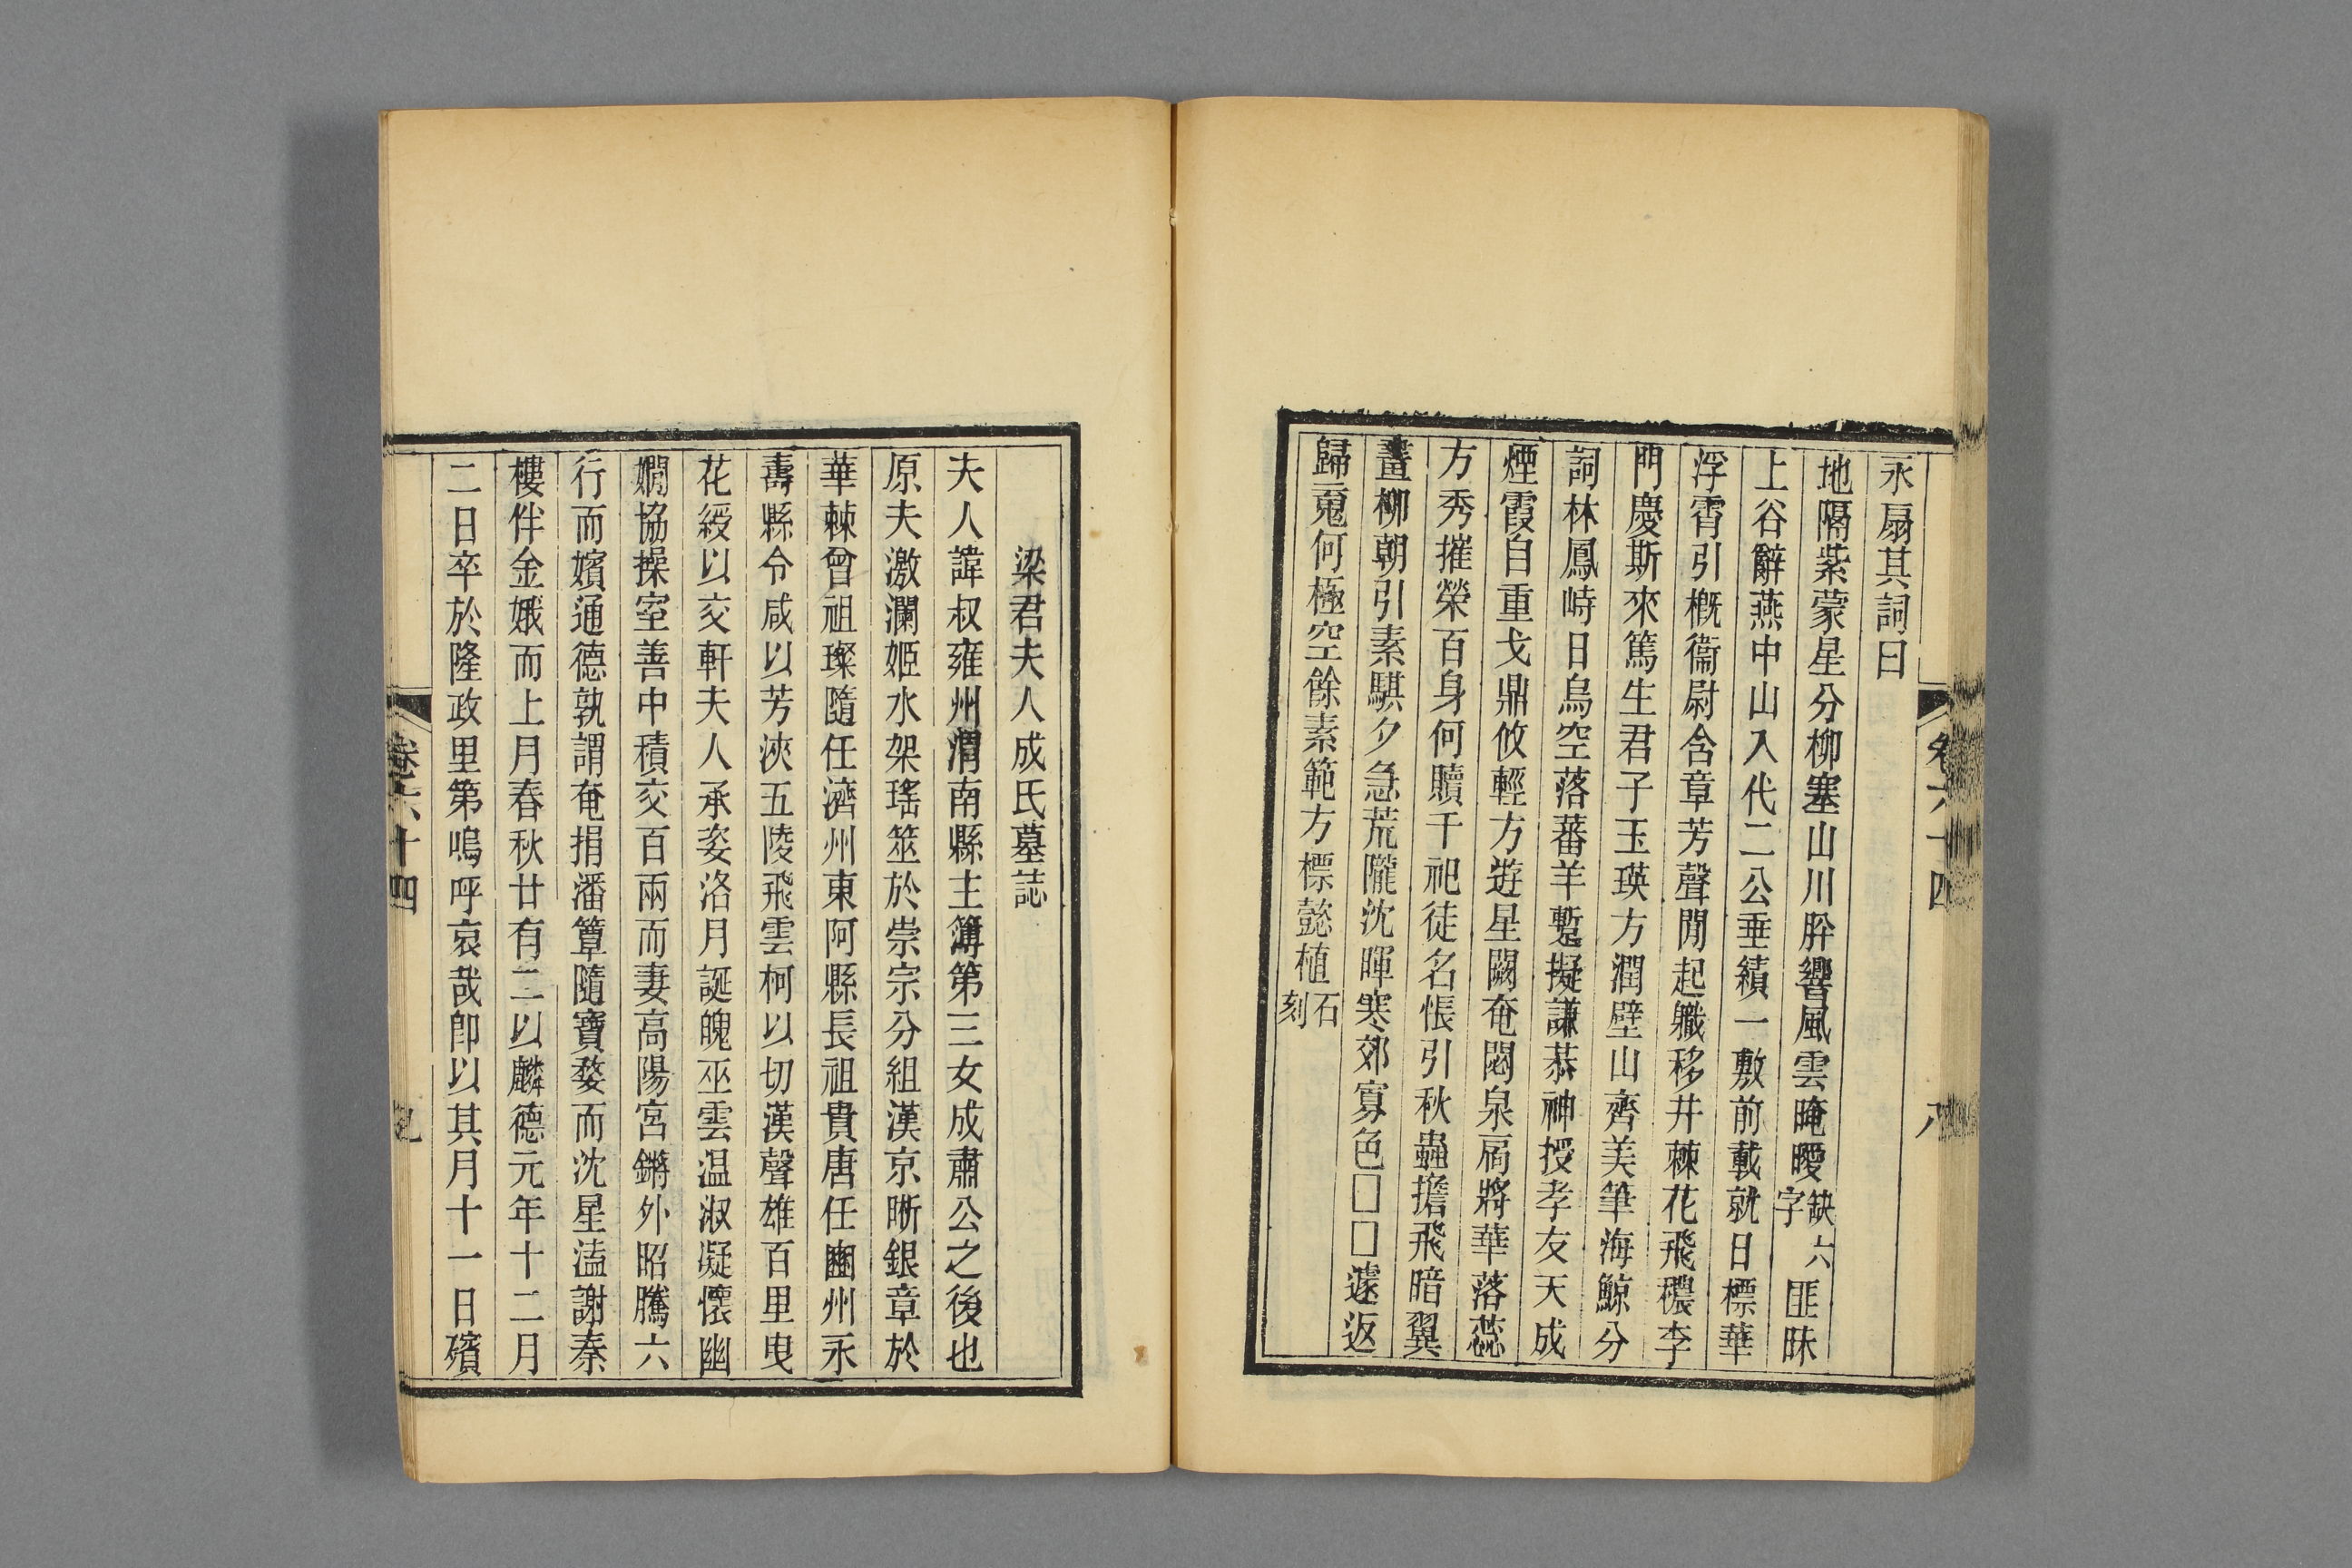 永扇其詞曰
地隔紫蒙星分柳塞山川肸響風雲晻曖缺六字匪昧
上谷辭燕中山入代二公垂績一敷前載就日標華
浮霄引概衞尉含章芳聲閒起軄移井棘花飛穠李
門慶斯來篤生君子玉瑛方潤壁山齊美筆海鯨分
詞林鳳峙日烏空落蕃羊蹔擬謙恭神授孝友天成
煙霞自重戈鼎攸輕方遊星闕奄悶泉扃將華落蕊
方秀摧榮百身何贖千祀徒名悵引秋蟲擔飛暗翼
畫柳朝引素騏夕急荒隴沈暉寒郊寡色□□遽返
歸䰟何極空餘素範方標懿植石刻
卷六十四
八
梁君夫人成氏墓誌
夫人諱叔雍州渭南縣主簿第三女成肅公之後也
原夫激瀾姬水架瑤筮於崇宗分組漢京晰銀章於
華棘曾祖璨隨任濟州東阿縣長祖貴唐任豳州永
壽縣令咸以芳浹五陵飛雲柯以切漢聲雄百里曳
花綬以交軒夫人承姿洛月誕魄巫雲温淑凝懷幽
嫺協操室善中積交百兩而妻高陽宮鏘外昭騰六
行而嬪通德孰謂奄捐潘簟隨寶婺而沈星溘謝秦
樓伴金娥而上月春秋廿有二以麟德元年十二月
二日卒於隆政里第嗚呼哀哉卽以其月十一日殯
卷六十四
九